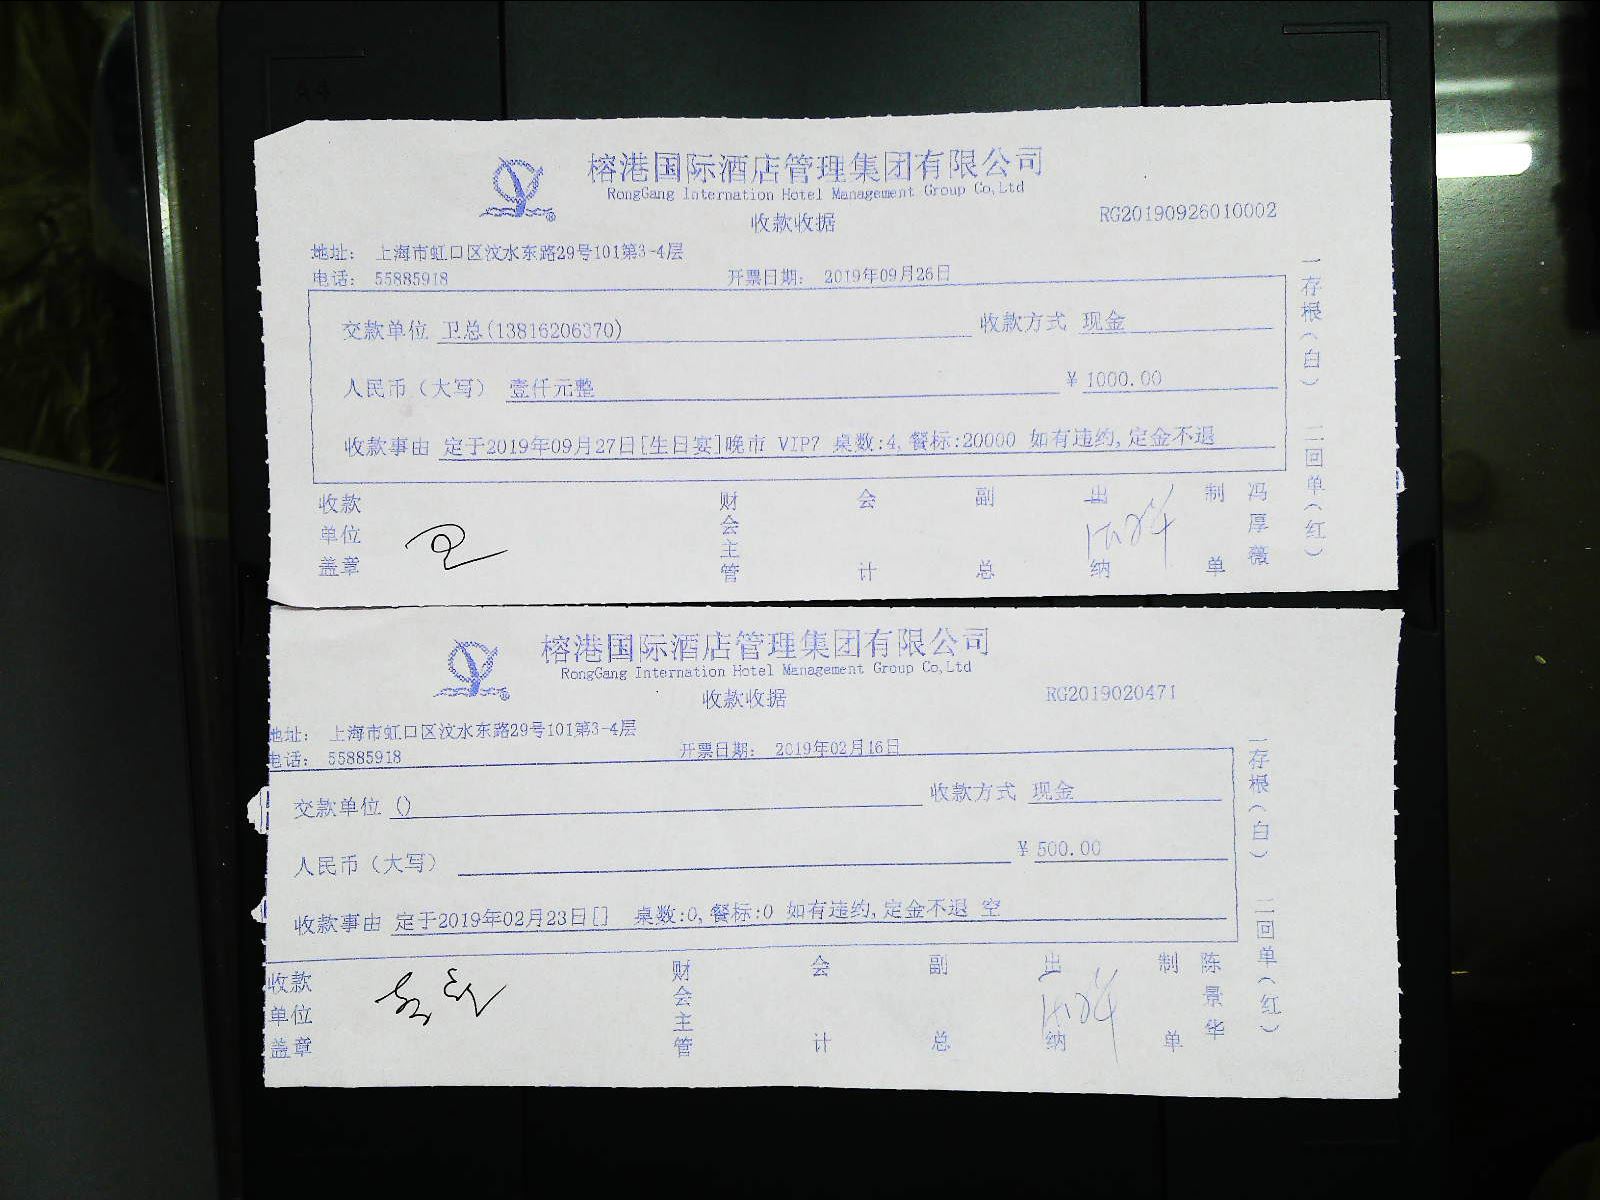 榕港国际酒店管理集团有限公司
RongGang Internation Hotel Management Group Co,Ltd
收款收据
RG20190926010002
地址： 上海市虹口区汶水东路29号101第3-4层
电话： 55885918 开票日期： 2019年09月26日
交款单位 卫总(13816206370) 收款方式 现金
人民币（大写） 壹仟元整 ¥ 1000.00
收款事由 定于2019年09月27日[生日宴]晚市 VIP7 桌数:4,餐标:20000 如有违约,定金不退
一存根（白） 二回单（红）
收款单位盖章 财会主管 会计 副总 出纳 制单 冯厚薇
榕港国际酒店管理集团有限公司
RongGang Internation Hotel Management Group Co,Ltd
收款收据
RG2019020471
地址： 上海市虹口区汶水东路29号101第3-4层
电话： 55885918 开票日期： 2019年02月16日
交款单位 () 收款方式 现金
人民币（大写） ¥ 500.00
收款事由 定于2019年02月23日[] 桌数:0,餐标:0 如有违约,定金不退 空
一存根（白） 二回单（红）
收款单位盖章 财会主管 会计 副总 出纳 制单 陈景华